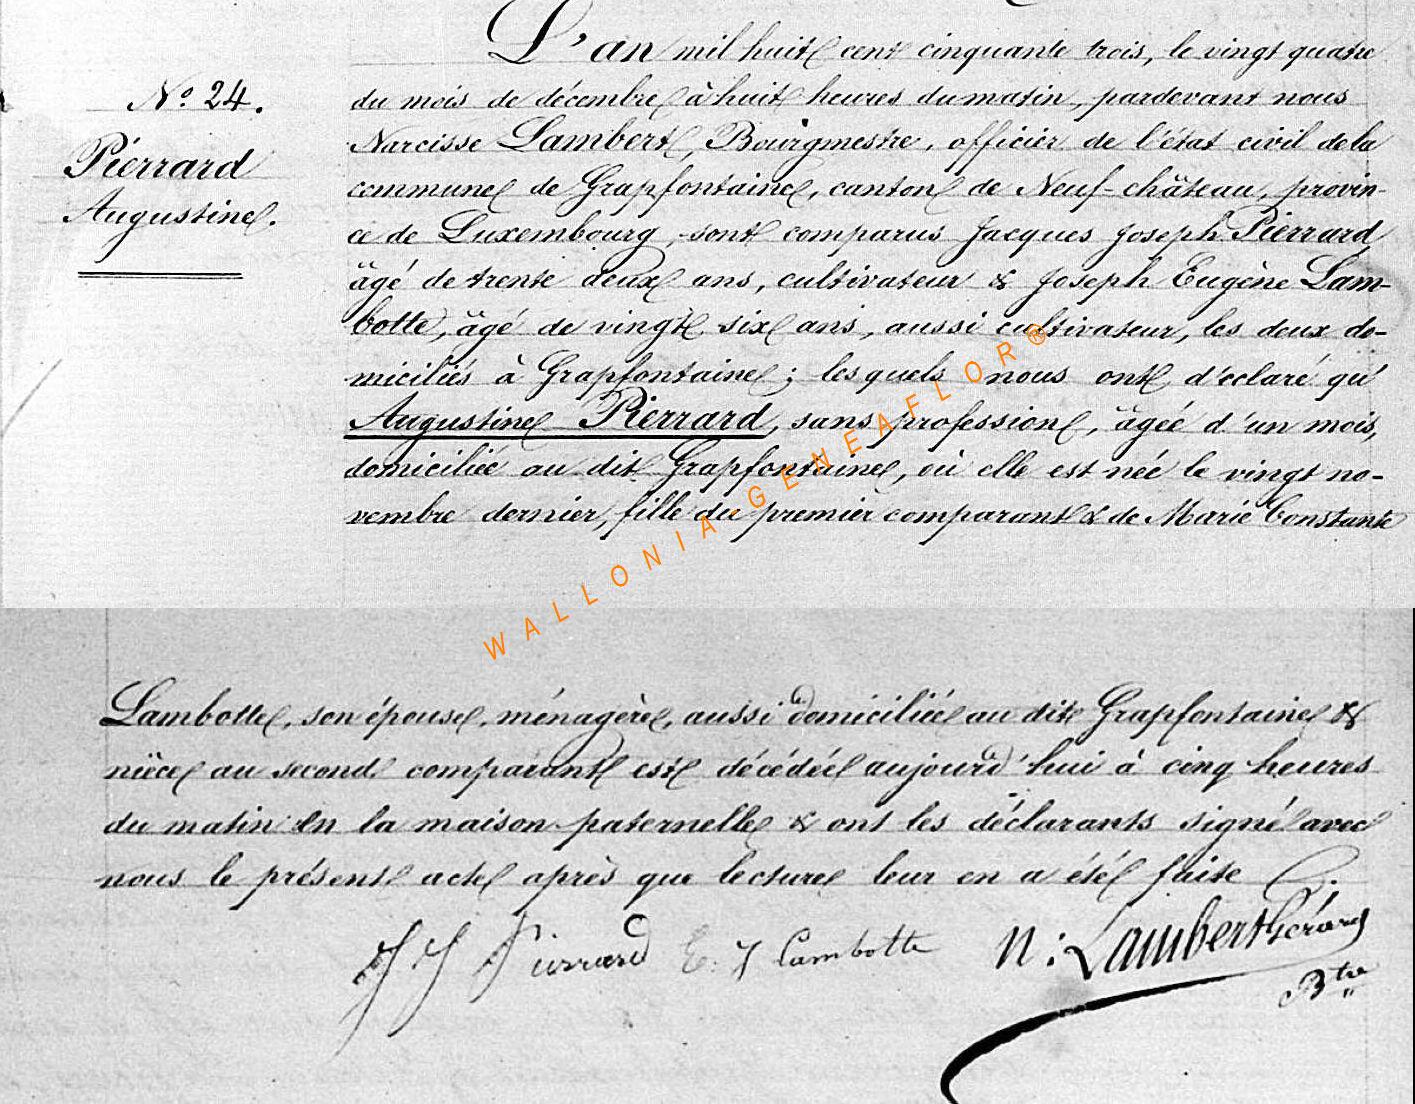 N.º 24.
Piérrard
Augustine.
L'an mil huit cent cinquante trois, le vingt quatre
du mois de décembre à huit heures du matin, pardevant nous
Narcisse Lambert, Bourgmestre, officier de l'état civil de la
commune de Grapfontaine, canton de Neuf-château, provin-
ce de Luxembourg, sont comparus Jacques Joseph Piérrard,
âgé de trente deux ans, cultivateur & Joseph Eugène Lam-
botte, âgé de vingt six ans, aussi cultivateur, les deux do-
miciliés à Grapfontaine ; les quels nous ont d'éclaré qu'
Augustine Piérrard, sans profession, âgée d'un mois,
domiciliée au dit Grapfontaine, où elle est née le vingt no-
vembre dernier, fille du premier comparant & de Marie Constante
WALLONIA-GENEAFLOR®
Lambotte, son épouse, ménagère, aussi domiciliée au dit Grapfontaine &
nièce au second comparant est décédée aujourd'hui à cinq heures
du matin en la maison paternelle & ont les déclarants signé avec
nous le présent acte après que lecture leur en a été faite.
J J Pierrard E. J Lambotte N: Lambert Gérard
Btre